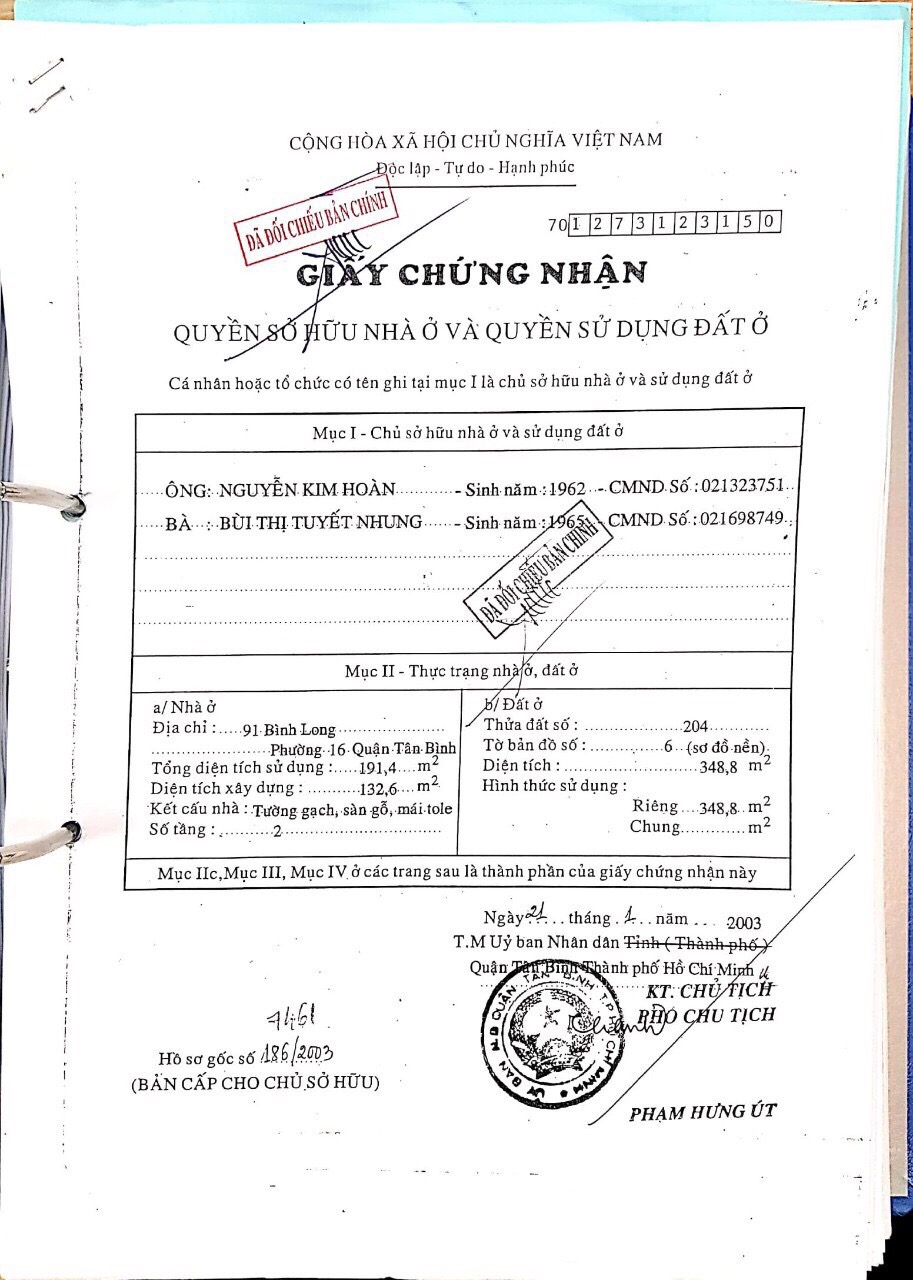 CỘNG HÒA XÃ HỘI CHỦ NGHĨA VIỆT NAM
Độc lập - Tự do - Hạnh phúc
ĐÃ ĐỐI CHIẾU BẢN CHÍNH
70 1 2 7 3 1 2 3 1 5 0
GIẤY CHỨNG NHẬN
QUYỀN SỞ HỮU NHÀ Ở VÀ QUYỀN SỬ DỤNG ĐẤT Ở
Cá nhân hoặc tổ chức có tên ghi tại mục I là chủ sở hữu nhà ở và sử dụng đất ở
Mục I - Chủ sở hữu nhà ở và sử dụng đất ở
ÔNG: NGUYỄN KIM HOÀN - Sinh năm : 1962 - CMND Số : 021323751
BÀ : BÙI THỊ TUYẾT NHUNG - Sinh năm : 1965 - CMND Số : 021698749
ĐÃ ĐỐI CHIẾU BẢN CHÍNH
Mục II - Thực trạng nhà ở, đất ở
a/ Nhà ở
Địa chỉ : 91 Bình Long
Phường 16 Quận Tân Bình
Tổng diện tích sử dụng : 191,4 m2
Diện tích xây dựng : 132,6 m2
Kết cấu nhà : Tường gạch, sàn gỗ, mái tole
Số tầng : 2
b/ Đất ở
Thửa đất số : 204
Tờ bản đồ số : 6 (sơ đồ nền)
Diện tích : 348,8 m2
Hình thức sử dụng :
Riêng 348,8 m2
Chung m2
Mục IIc, Mục III, Mục IV ở các trang sau là thành phần của giấy chứng nhận này
Ngày 21 tháng 1 năm 2003
T.M Uỷ ban Nhân dân Tỉnh ( Thành phố )
Quận Tân Bình Thành phố Hồ Chí Minh
KT. CHỦ TỊCH
PHÓ CHỦ TỊCH
ỦY BAN N.D QUẬN TÂN BÌNH T.P HỒ CHÍ MINH
PHẠM HƯNG ÚT
Hồ sơ gốc số 186/2003
(BẢN CẤP CHO CHỦ SỞ HỮU)